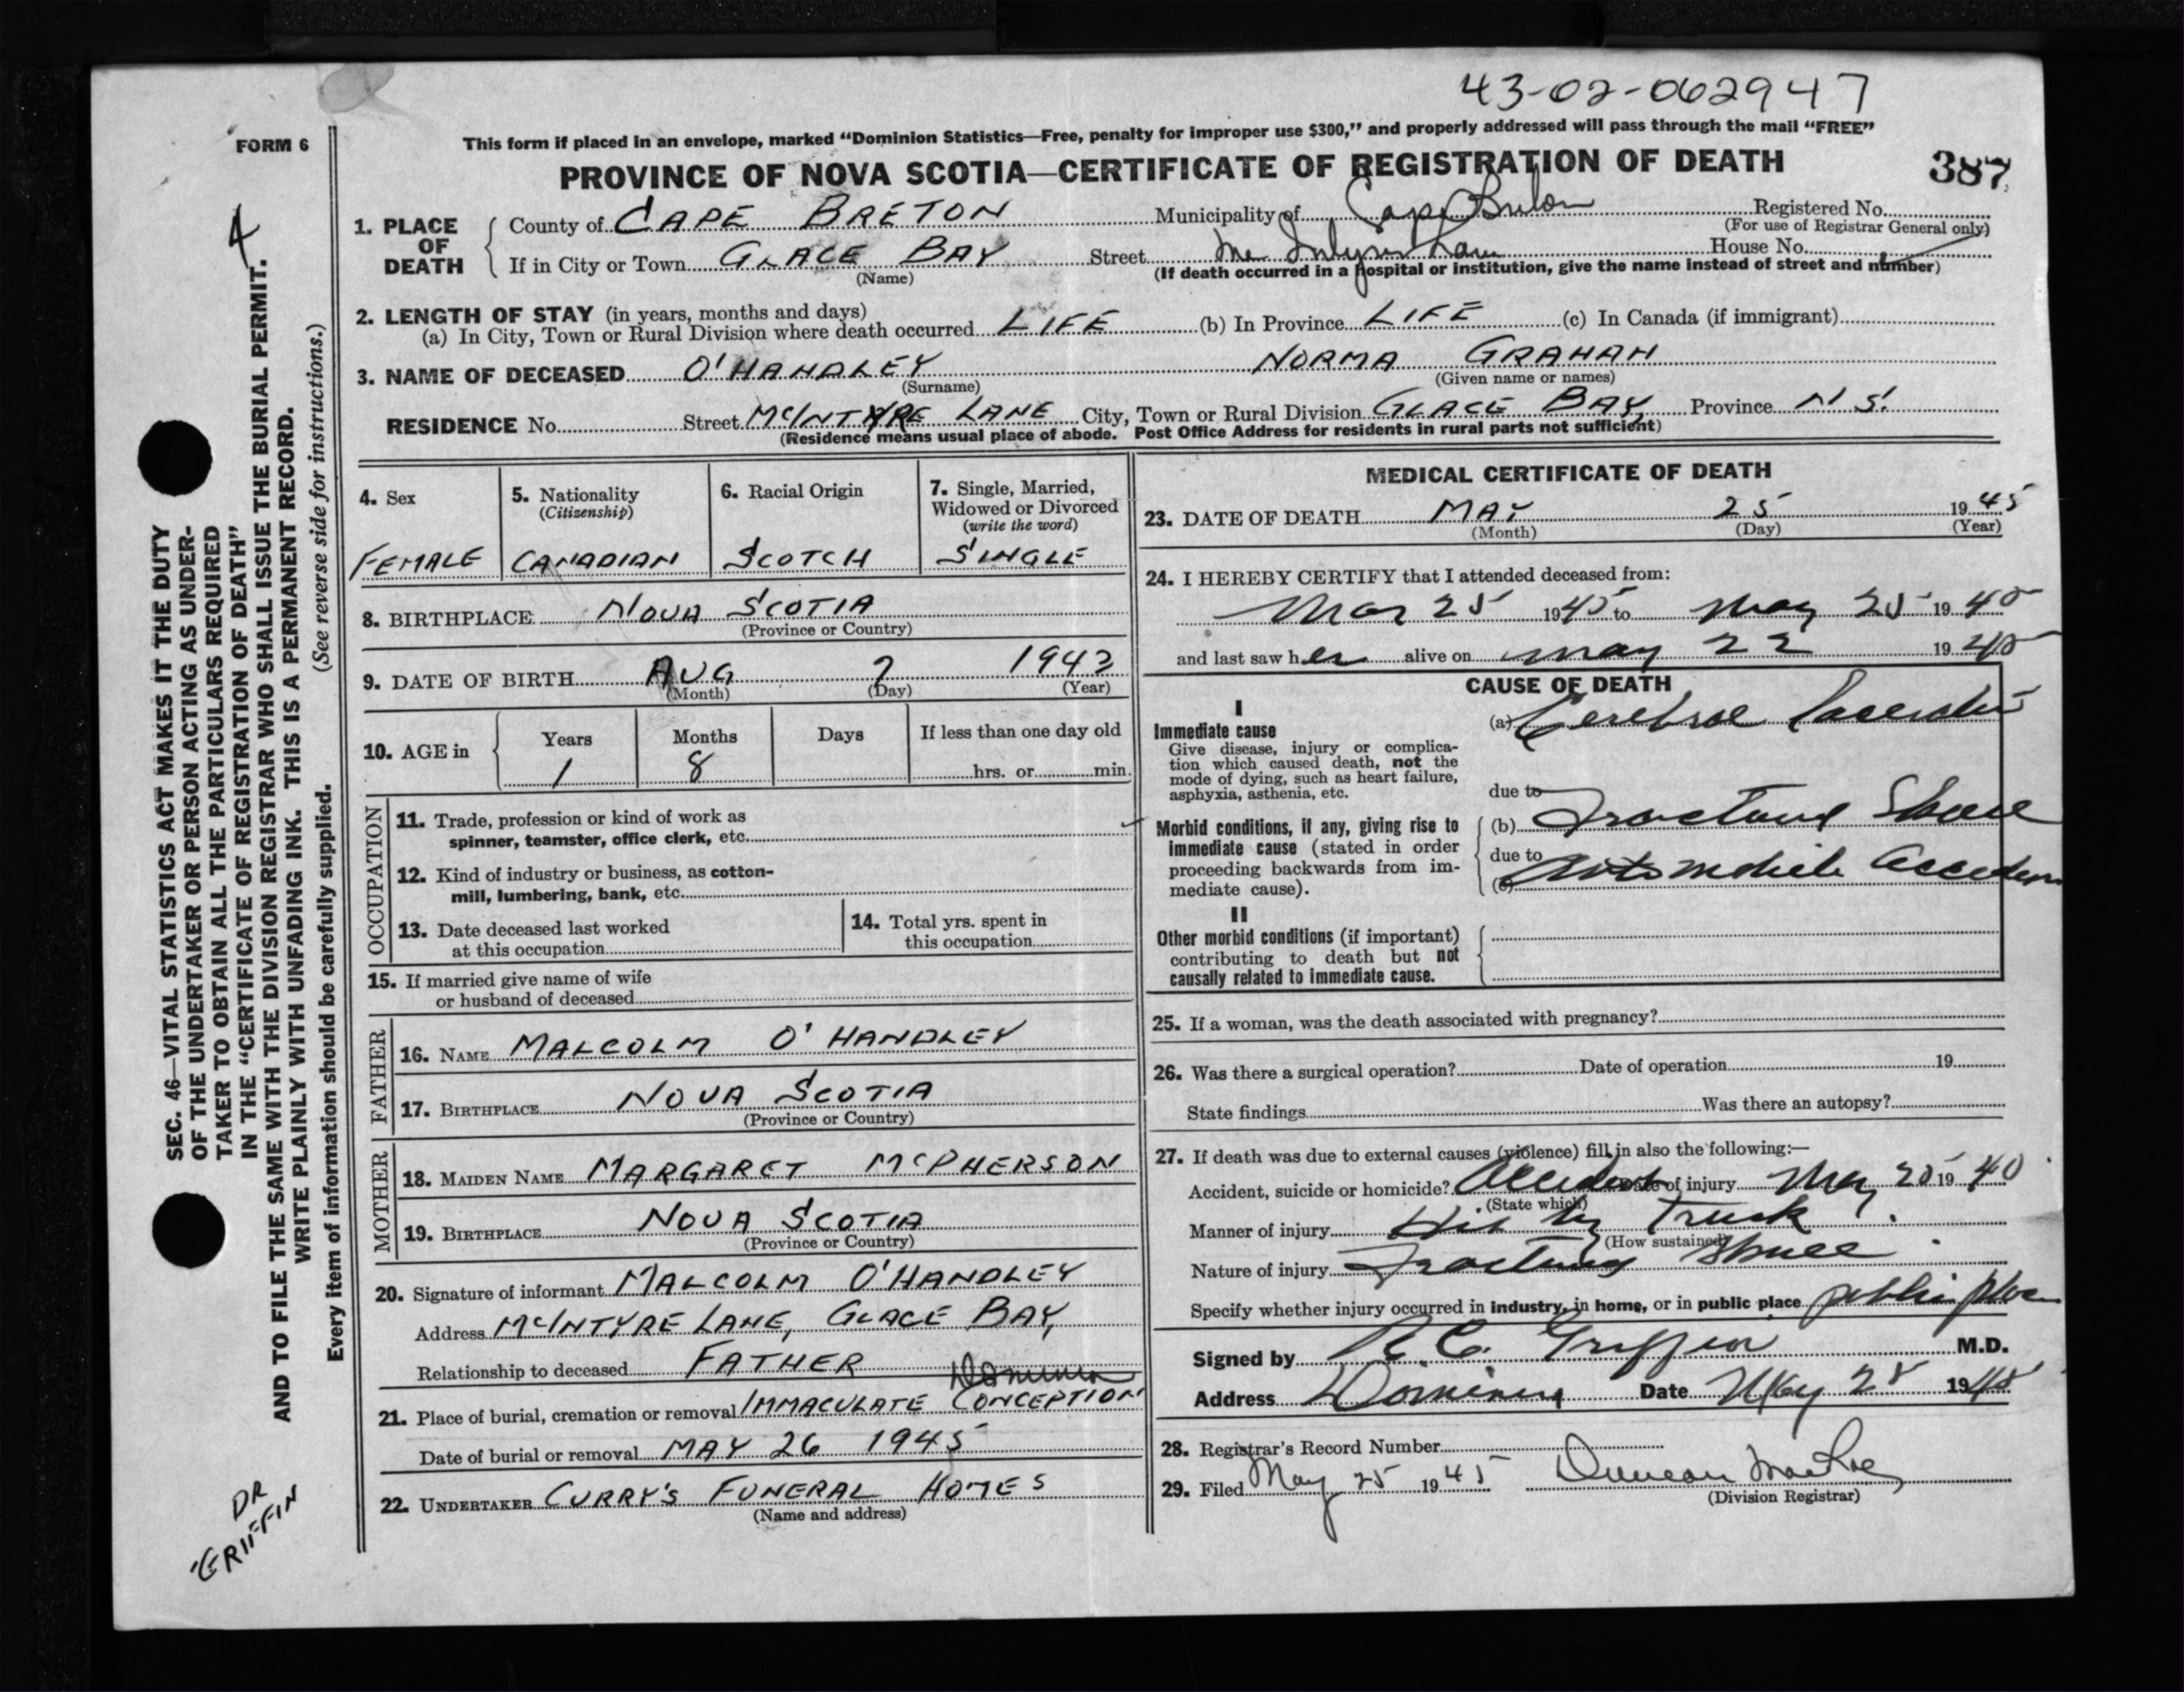 43-02-062947
FORM 6
This form if placed in an envelope, marked "Dominion Statistics—Free, penalty for improper use $300," and properly addressed will pass through the mail "FREE"
PROVINCE OF NOVA SCOTIA—CERTIFICATE OF REGISTRATION OF DEATH
387
1. PLACE OF DEATH
County of CAPE BRETON Municipality of Cape Breton Registered No.
(For use of Registrar General only)
If in City or Town GLACE BAY Street Lane House No.
(Name)
(If death occurred in a hospital or institution, give the name instead of street and number)
2. LENGTH OF STAY (in years, months and days)
(a) In City, Town or Rural Division where death occurred LIFE (b) In Province LIFE (c) In Canada (if immigrant)
3. NAME OF DECEASED O'HANDLEY NORMA GRAHAM
(Surname) (Given name or names)
RESIDENCE No. Street McINTYRE LANE City, Town or Rural Division GLACE BAY, Province N S.
(Residence means usual place of abode. Post Office Address for residents in rural parts not sufficient)
4. Sex
FEMALE
5. Nationality
(Citizenship)
CANADIAN
6. Racial Origin
SCOTCH
7. Single, Married,
Widowed or Divorced
(write the word)
SINGLE
8. BIRTHPLACE NOVA SCOTIA
(Province or Country)
9. DATE OF BIRTH AUG 7 1943
(Month) (Day) (Year)
10. AGE in
Years Months Days If less than one day old
1 8 hrs. or min.
OCCUPATION
11. Trade, profession or kind of work as
spinner, teamster, office clerk, etc.
12. Kind of industry or business, as cotton-
mill, lumbering, bank, etc.
13. Date deceased last worked
at this occupation
14. Total yrs. spent in
this occupation
15. If married give name of wife
or husband of deceased
FATHER
16. NAME MALCOLM O'HANDLEY
17. BIRTHPLACE NOVA SCOTIA
(Province or Country)
MOTHER
18. MAIDEN NAME MARGARET McPHERSON
19. BIRTHPLACE NOVA SCOTIA
(Province or Country)
20. Signature of informant MALCOLM O'HANDLEY
Address McINTYRE LANE, GLACE BAY,
Relationship to deceased FATHER
Dominion
21. Place of burial, cremation or removal IMMACULATE CONCEPTION
Date of burial or removal MAY 26 1945
22. UNDERTAKER CURRY'S FUNERAL HOMES
(Name and address)
MEDICAL CERTIFICATE OF DEATH
23. DATE OF DEATH MAY 25 1945
(Month) (Day) (Year)
24. I HEREBY CERTIFY that I attended deceased from:
25 1945 to May 25 1945
and last saw her alive on May 22 1945
CAUSE OF DEATH
I
Immediate cause
Give disease, injury or complica-
tion which caused death, not the
mode of dying, such as heart failure,
asphyxia, asthenia, etc.
(a) Cerebral Laceration
due to
Morbid conditions, if any, giving rise to
immediate cause (stated in order
proceeding backwards from im-
mediate cause).
(b) Fractured Skull
due to
(c) Automobile Accident
II
Other morbid conditions (if important)
contributing to death but not
causally related to immediate cause.
25. If a woman, was the death associated with pregnancy?
26. Was there a surgical operation? Date of operation 19
State findings Was there an autopsy?
27. If death was due to external causes (violence) fill in also the following:—
Accident, suicide or homicide? Accident Date of injury May 25 19
(State which)
Manner of injury Hit by Truck
(How sustained)
Nature of injury Fractured Skull
Specify whether injury occurred in industry, in home, or in public place public place
Signed by R.C. Griffin M.D.
Address Dominion Date May 28 1945
28. Registrar's Record Number
29. Filed May 25 1945 Duncan
(Division Registrar)
SEC. 46—VITAL STATISTICS ACT MAKES IT THE DUTY
OF THE UNDERTAKER OR PERSON ACTING AS UNDER-
TAKER TO OBTAIN ALL THE PARTICULARS REQUIRED
IN THE "CERTIFICATE OF REGISTRATION OF DEATH"
AND TO FILE THE SAME WITH THE DIVISION REGISTRAR WHO SHALL ISSUE THE BURIAL PERMIT.
WRITE PLAINLY WITH UNFADING INK. THIS IS A PERMANENT RECORD.
Every item of information should be carefully supplied. (See reverse side for instructions.)
DR
GRIFFIN